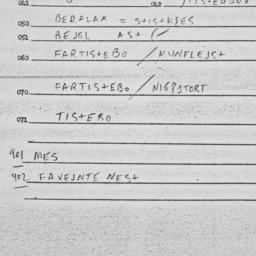 050 BERALAX = S+IS+KSES
051 BEJGL AS+ (
060 FARTIS+EBO / KUNFLEJS+
070 FARTIS+EBO / NIGRSTORT
071 TIS+EBO
901 MES
902 FAVEINTE NES+